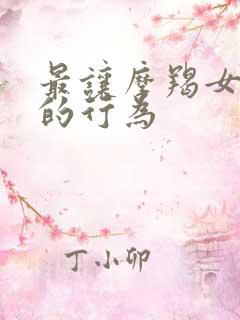 最讓摩羯女
的行為
丁小卯